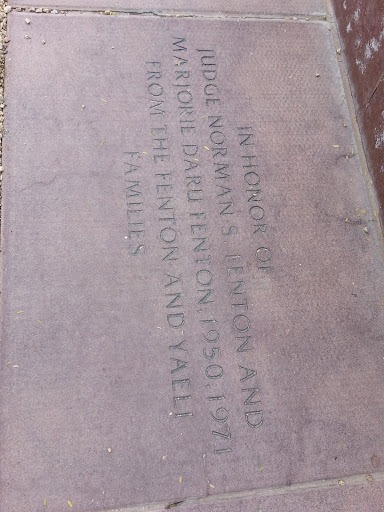 IN HONOR OF
JUDGE NORMAN S. FENTON AND
MARJORIE DARU FENTON, 1950, 1971
FROM THE FENTON AND YAELI
FAMILIES